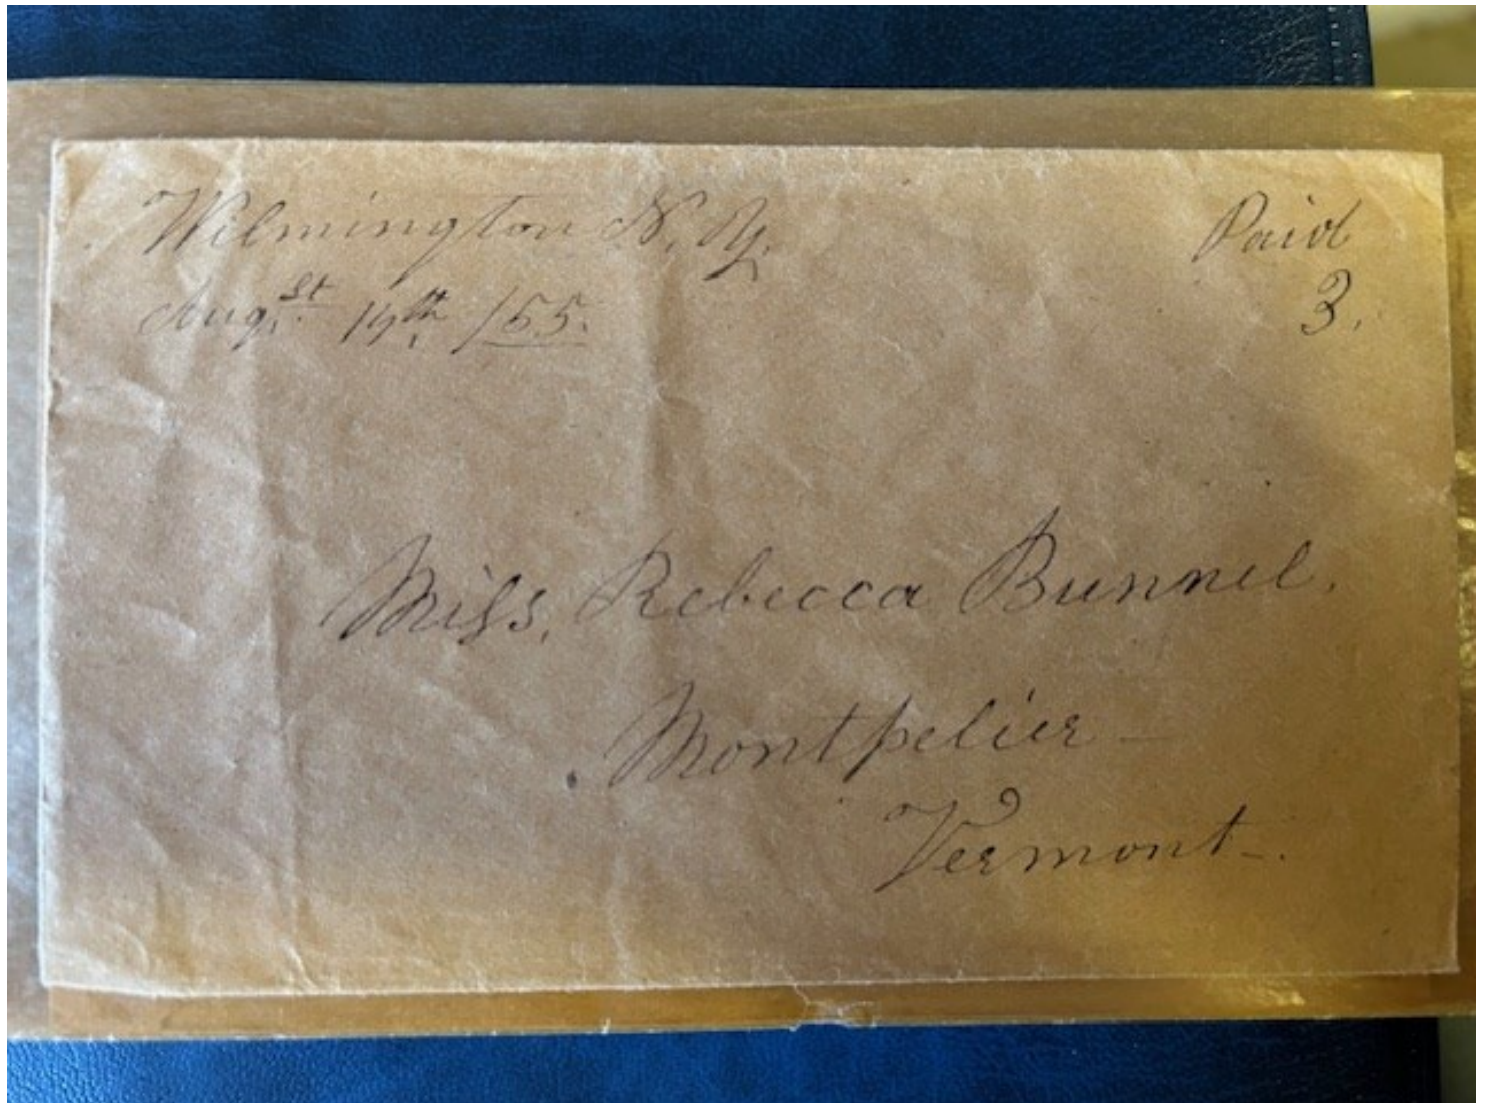 Wilmington N. Y.
Paid
Augst. 14th. /55.
3.
Miss, Rebecca Bunnel.
Montpelier –
Vermont –.